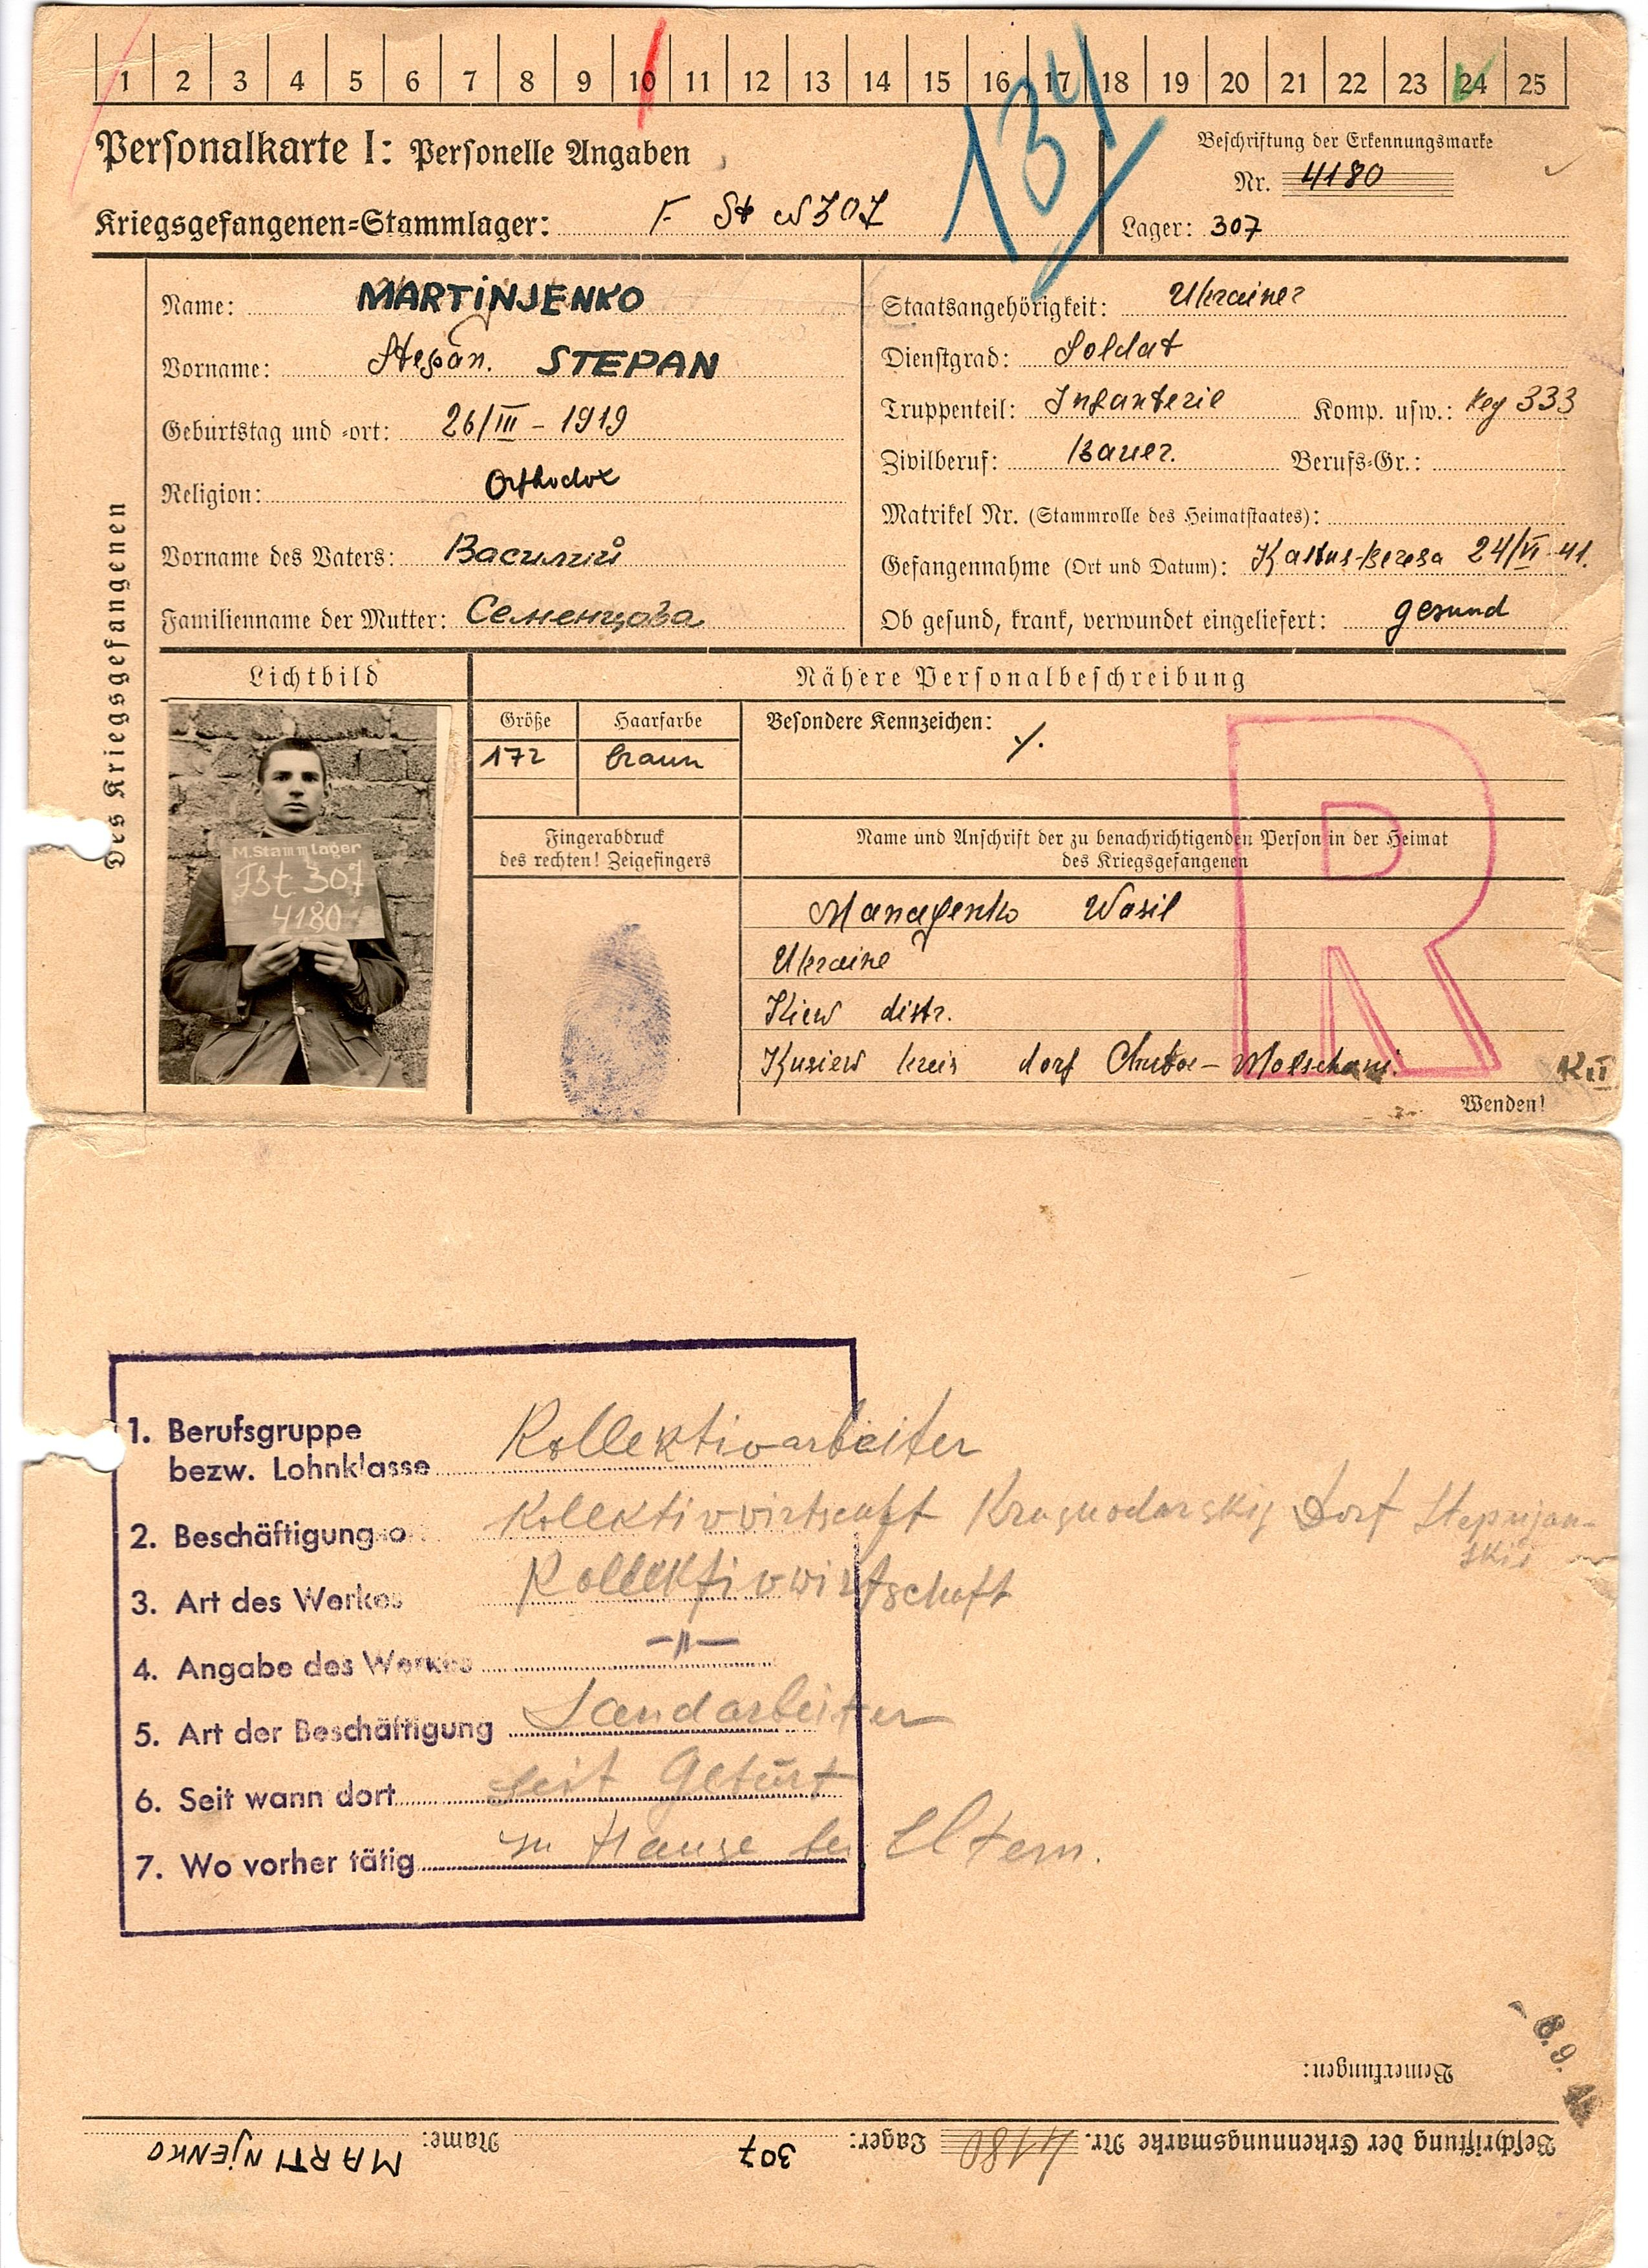 1 2 3 4 5 6 7 8 9 10 11 12 13 14 15 16 17 18 19 20 21 22 23 24 25
134
Personalkarte I: Personelle Angaben
Beschriftung der Erkennungsmarke
Nr. 4180
Kriegsgefangenen-Stammlager: F. St 307
Lager: 307
Des Kriegsgefangenen
Name: MARTINJENKO
Vorname: Stepan. STEPAN
Geburtstag und -ort: 26/III - 1919
Religion: Orthodox
Vorname des Vaters: Василий
Familienname der Mutter: Семенцова
Staatsangehörigkeit: Ukrainer
Dienstgrad: Soldat
Truppenteil: Infanterie Komp. usw.: Reg 333
Zivilberuf: Bauer. Berufs-Gr.:
Matrikel Nr. (Stammrolle des Heimatstaates):
Gefangennahme (Ort und Datum): Kartus-Beresa 24/VI 41.
Ob gesund, krank, verwundet eingeliefert: gesund
Lichtbild
M.Stammlager
FSt 307
4180
Nähere Personalbeschreibung
Größe Haarfarbe
172 braun
Besondere Kennzeichen: ./.
R
Fingerabdruck
des rechten! Zeigefingers
Name und Anschrift der zu benachrichtigenden Person in der Heimat
des Kriegsgefangenen
Wasil
Ukraine
Kiew distr.
kreis dorf
Wenden!
1. Berufsgruppe
bezw. Lohnklasse Kollektivarbeiter
2. Beschäftigungso Kolektivwirtschaft Krasnodarskij Dorf Stepnjan-
skii
3. Art des Werkes Kollektivwirtschaft
4. Angabe des Werkes -"-
5. Art der Beschäftigung Landarbeiter
6. Seit wann dort seit Geburt
7. Wo vorher tätig zu Hause bei Eltern.
Bemerkungen:
Beschriftung der Erkennungsmarke Nr. 4180 Lager: 307 Name: MARTINJENKO